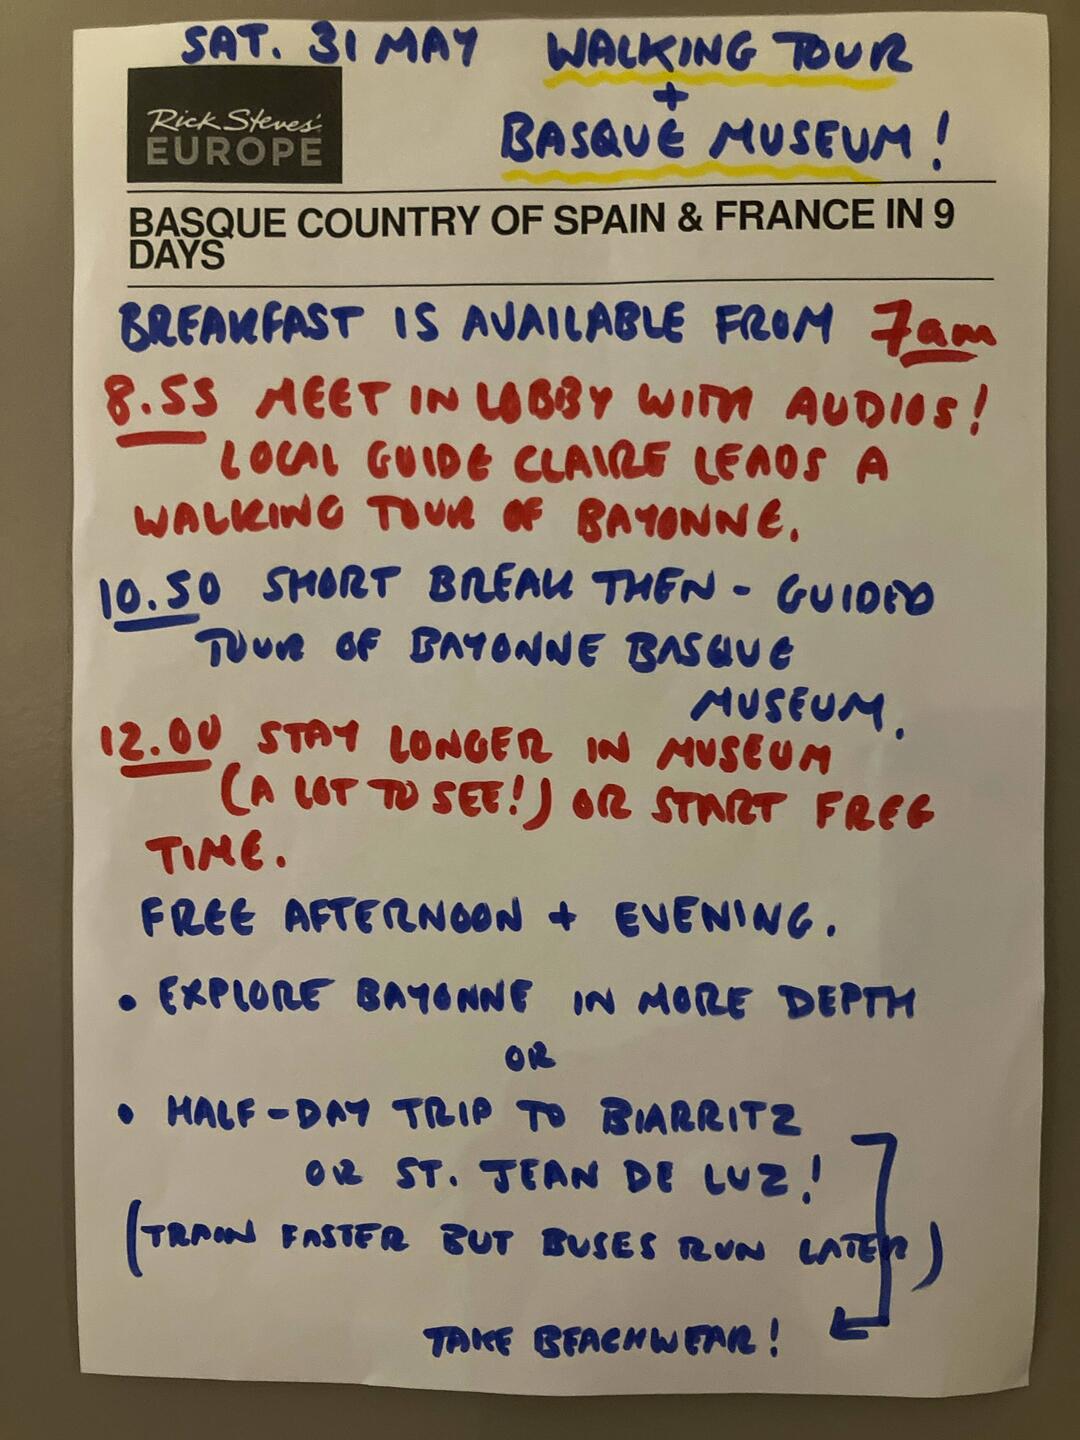 SAT. 31 MAY WALKING TOUR
+
BASQUE MUSEUM!
Rick Steves'
EUROPE
BASQUE COUNTRY OF SPAIN & FRANCE IN 9
DAYS
BREAKFAST IS AVAILABLE FROM 7am
8.55 MEET IN LOBBY WITH AUDIOS!
LOCAL GUIDE CLAIRE LEADS A
WALKING TOUR OF BAYONNE.
10.50 SHORT BREAK THEN - GUIDED
TOUR OF BAYONNE BASQUE
MUSEUM.
12.00 STAY LONGER IN MUSEUM
(A LOT TO SEE!) OR START FREE
TIME.
FREE AFTERNOON + EVENING.
• EXPLORE BAYONNE IN MORE DEPTH
OR
• HALF-DAY TRIP TO BIARRITZ
OR ST. JEAN DE LUZ!
(TRAIN FASTER BUT BUSES RUN LATER)
TAKE BEACHWEAR!